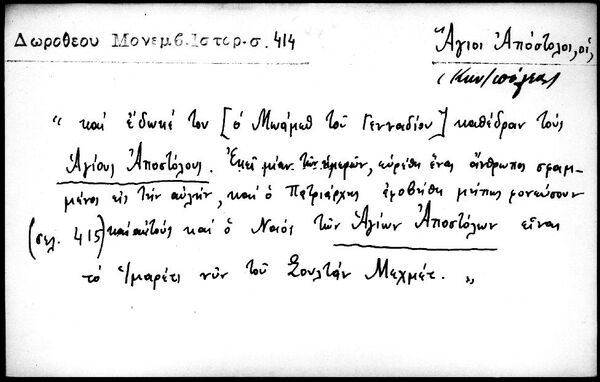 Δωροθεου Μονεμβ.Ιστορ.σ. 414
Ἅγιοι Ἀπόστολοι, οἱ,
(Κων/πόλεως)
" καὶ ἔδωκέ τον [ὁ Μωάμεθ τοῦ Γενναδίου] καθέδραν τοὺς
Ἁγίους Ἀποστόλους. Ἐκεῖ μίαν τῶν ἡμερῶν, εὑρέθη ἕνας ἄνθρωπος σφαμ-
μένος εἰς τὴν αὐλήν, καὶ ὁ Πατριάρχης ἐφοβήθη μήπως φονεύσουν
(σελ. 415) καὶ αὐτοὺς καὶ ὁ Ναὸς τῶν Ἁγίων Ἀποστόλων εἶναι
τὸ Ἰμαρέτι νῦν τοῦ Σουλτὰν Μεχμέτ. "